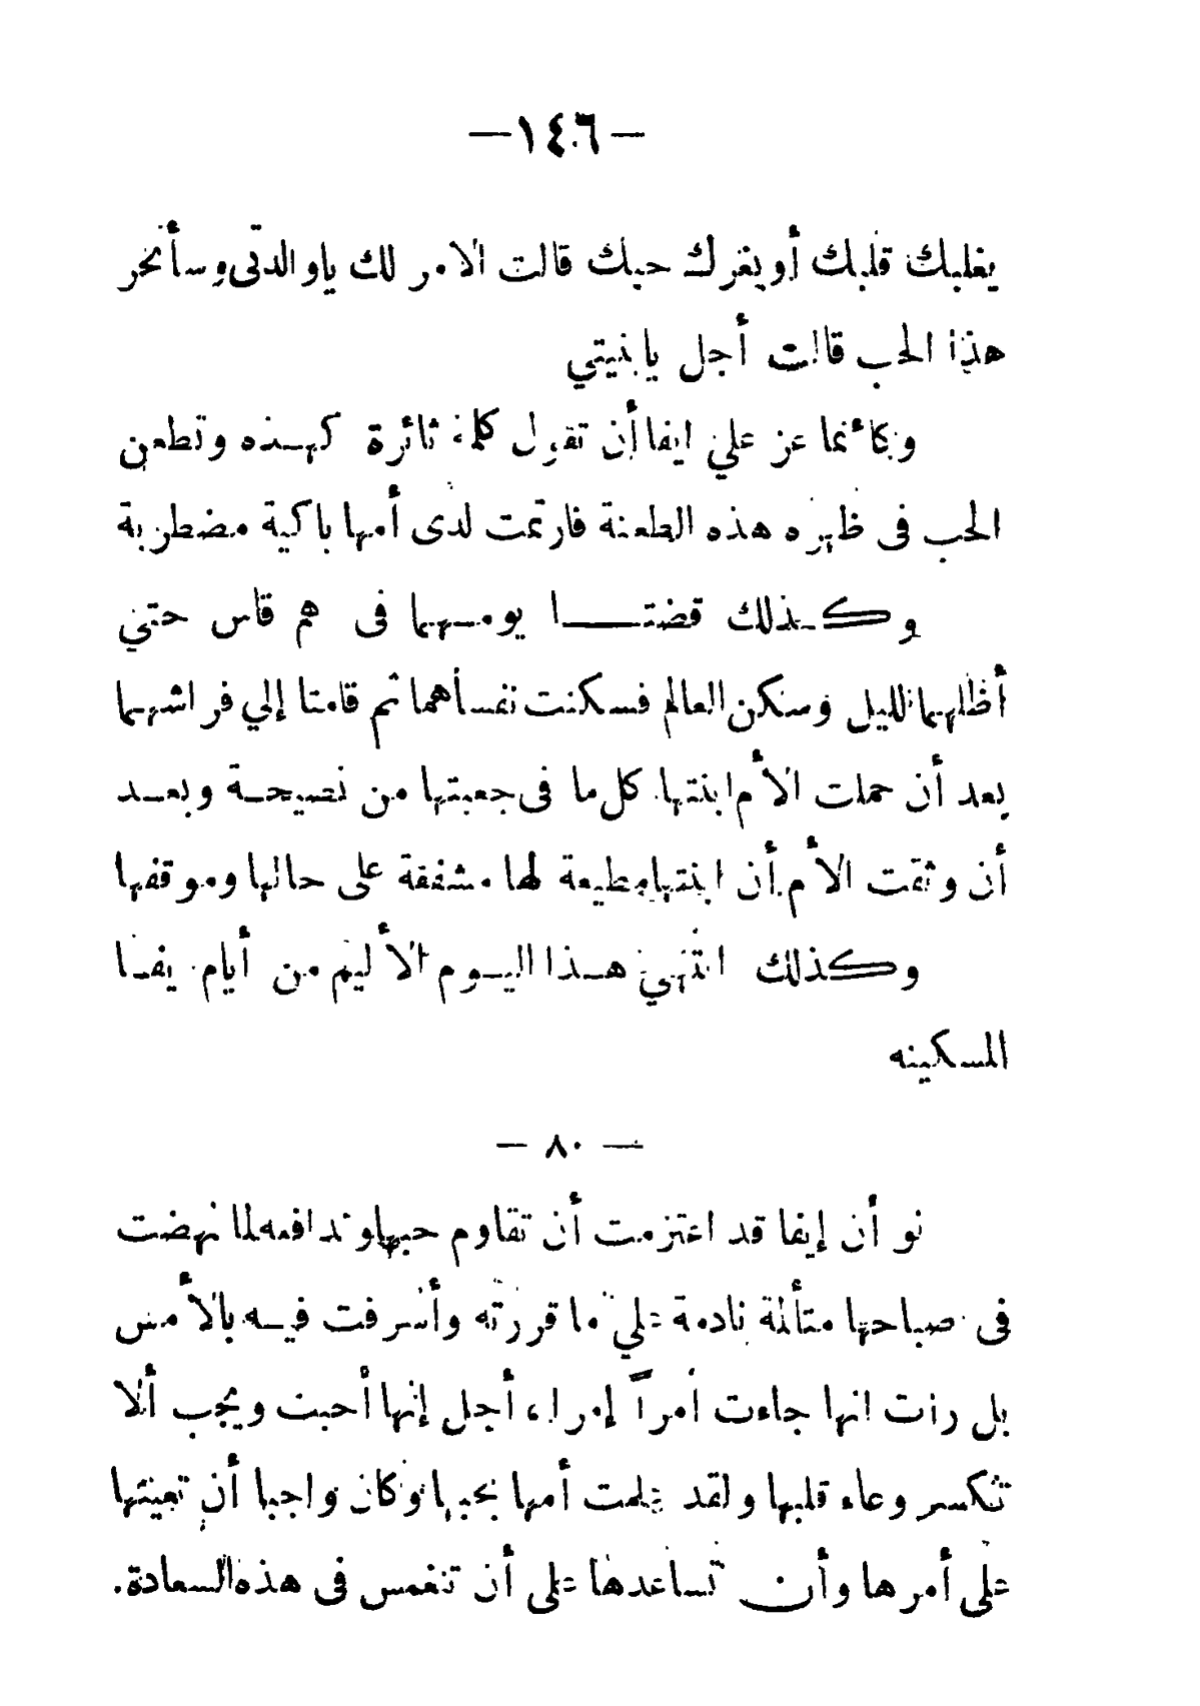 —١٤٦—
يغلبك قلبك أو يغرك حبك قالت الامر لك ياوالدتى وسأنحر
هذا الحب قالت أجل يابنيتي
وكأنما عز علي ايفا أن تقول كلمة ثائرة كهذه وتطعن
الحب فى ظهره هذه الطعنة فارتمت لدى أمها باكية مضطربة
وكذلك قضتا يومهما فى هم قاس حتي
أظلهما الليل وسكن العالم فسكنت نفسأهما ثم قامتا إلي فراشهما
بعد أن حملت الأم ابنتها كل ما فى جعبتها من نصيحة وبعد
أن وثقت الأم أن ابنتها مطيعة لها مشفقة على حالها وموقفها
وكذلك انتهي هذا اليوم الأليم من أيام يفا
المسكينه
— ٨٠ —
نو أن إيفا قد اعتزمت أن تقاوم حبها وتدافعه لما نهضت
فى صباحها متألمة نادمة علي ما قررته وأسرفت فيه بالأمس
بل رأت انها جاءت أمراً إمرا، أجل إنها أحبت ويجب ألا
تنكسر وعاء قلبها ولقد علمت أمها بحبها وكان واجبا أن تعينها
على أمرها وأن تساعدها على أن تنغمس فى هذه السعادة.